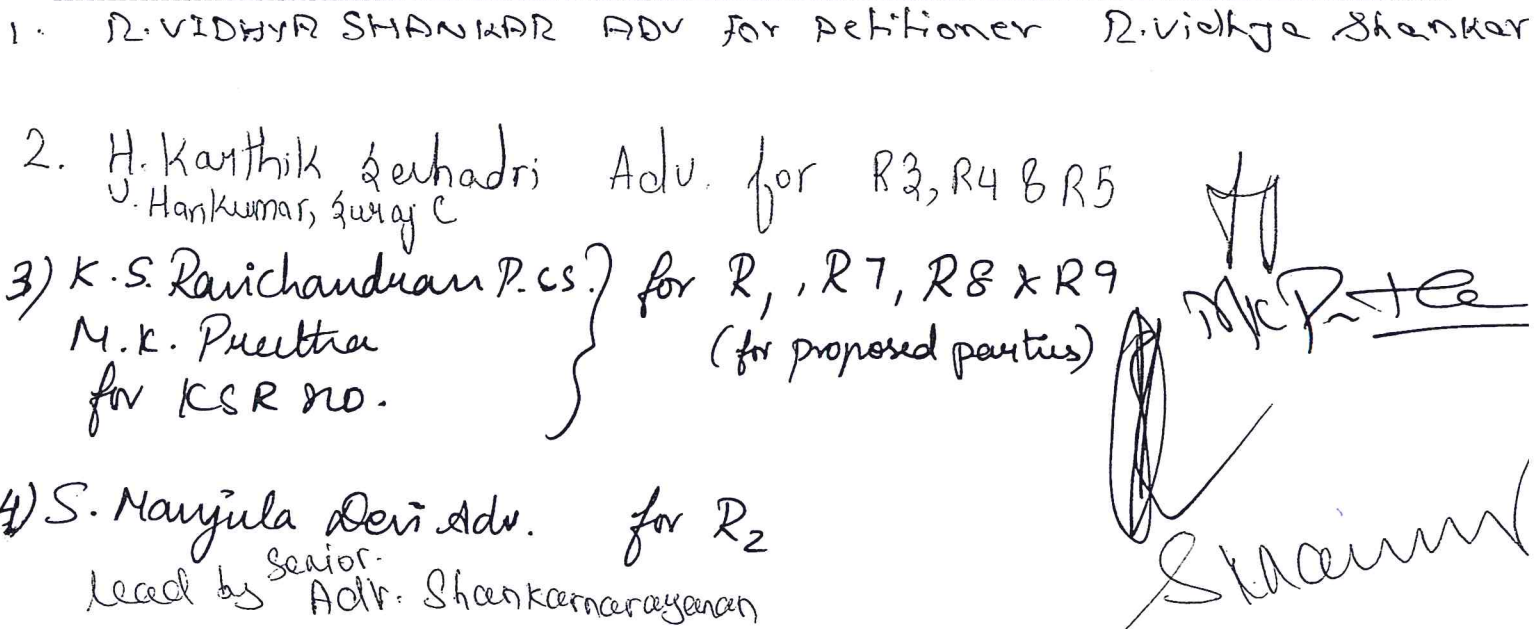 1. R. VIDHYA SHANKAR ADV for petitioner R. Vidhya Shankar
2. H. Karthik Seshadri Adv. for R3, R4 & R5
V. Harikumar, Suraj C
3) K.S. Ravichandran P.C.S. } for R1, R7, R8 & R9
M.K. Preetha (for proposed parties)
for KSR
4) S. Manjula Devi Adv. for R2
Lead by Senior. Adv. Shankarnarayanan